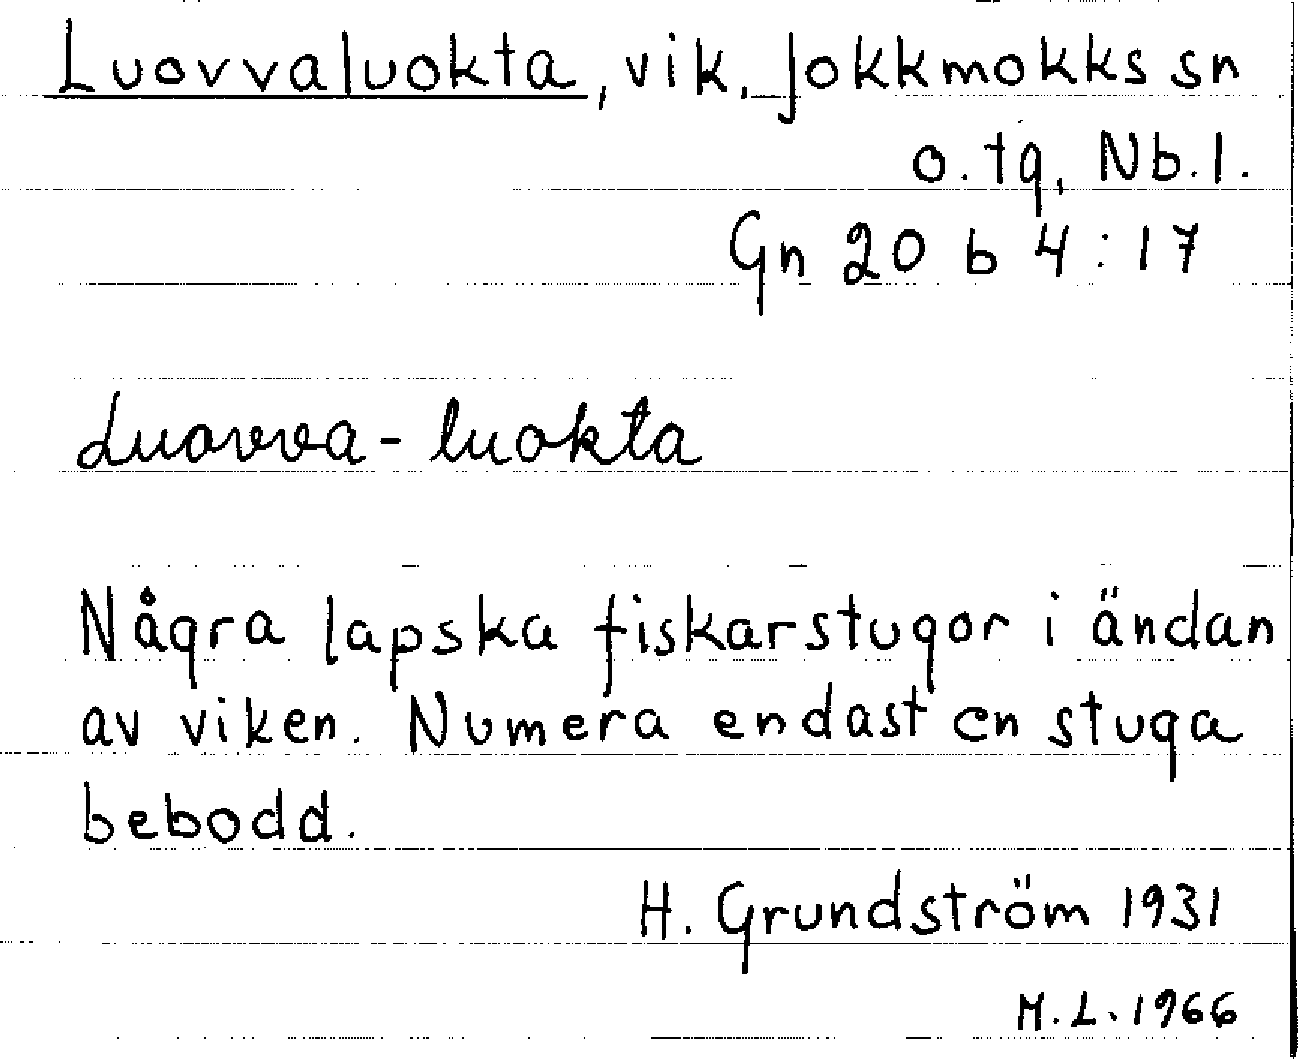 Luovvaluokta, vik, Jokkmokks sn
o. tg, Nb. l.
Gn 20 b 4:17
Luovva-luokta
Några lapska fiskarstugor i ändan
av viken. Numera endast en stuga
bebodd.
H. Grundström 1931
M.L. 1966